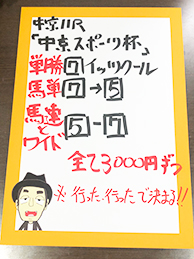 中京11R
「中京スポーツ杯」
単勝 7 イッツクール
馬単 7→5
馬連とワイド 5-7
全て3000円ずつ
※ 行った、行ったで決まる!!